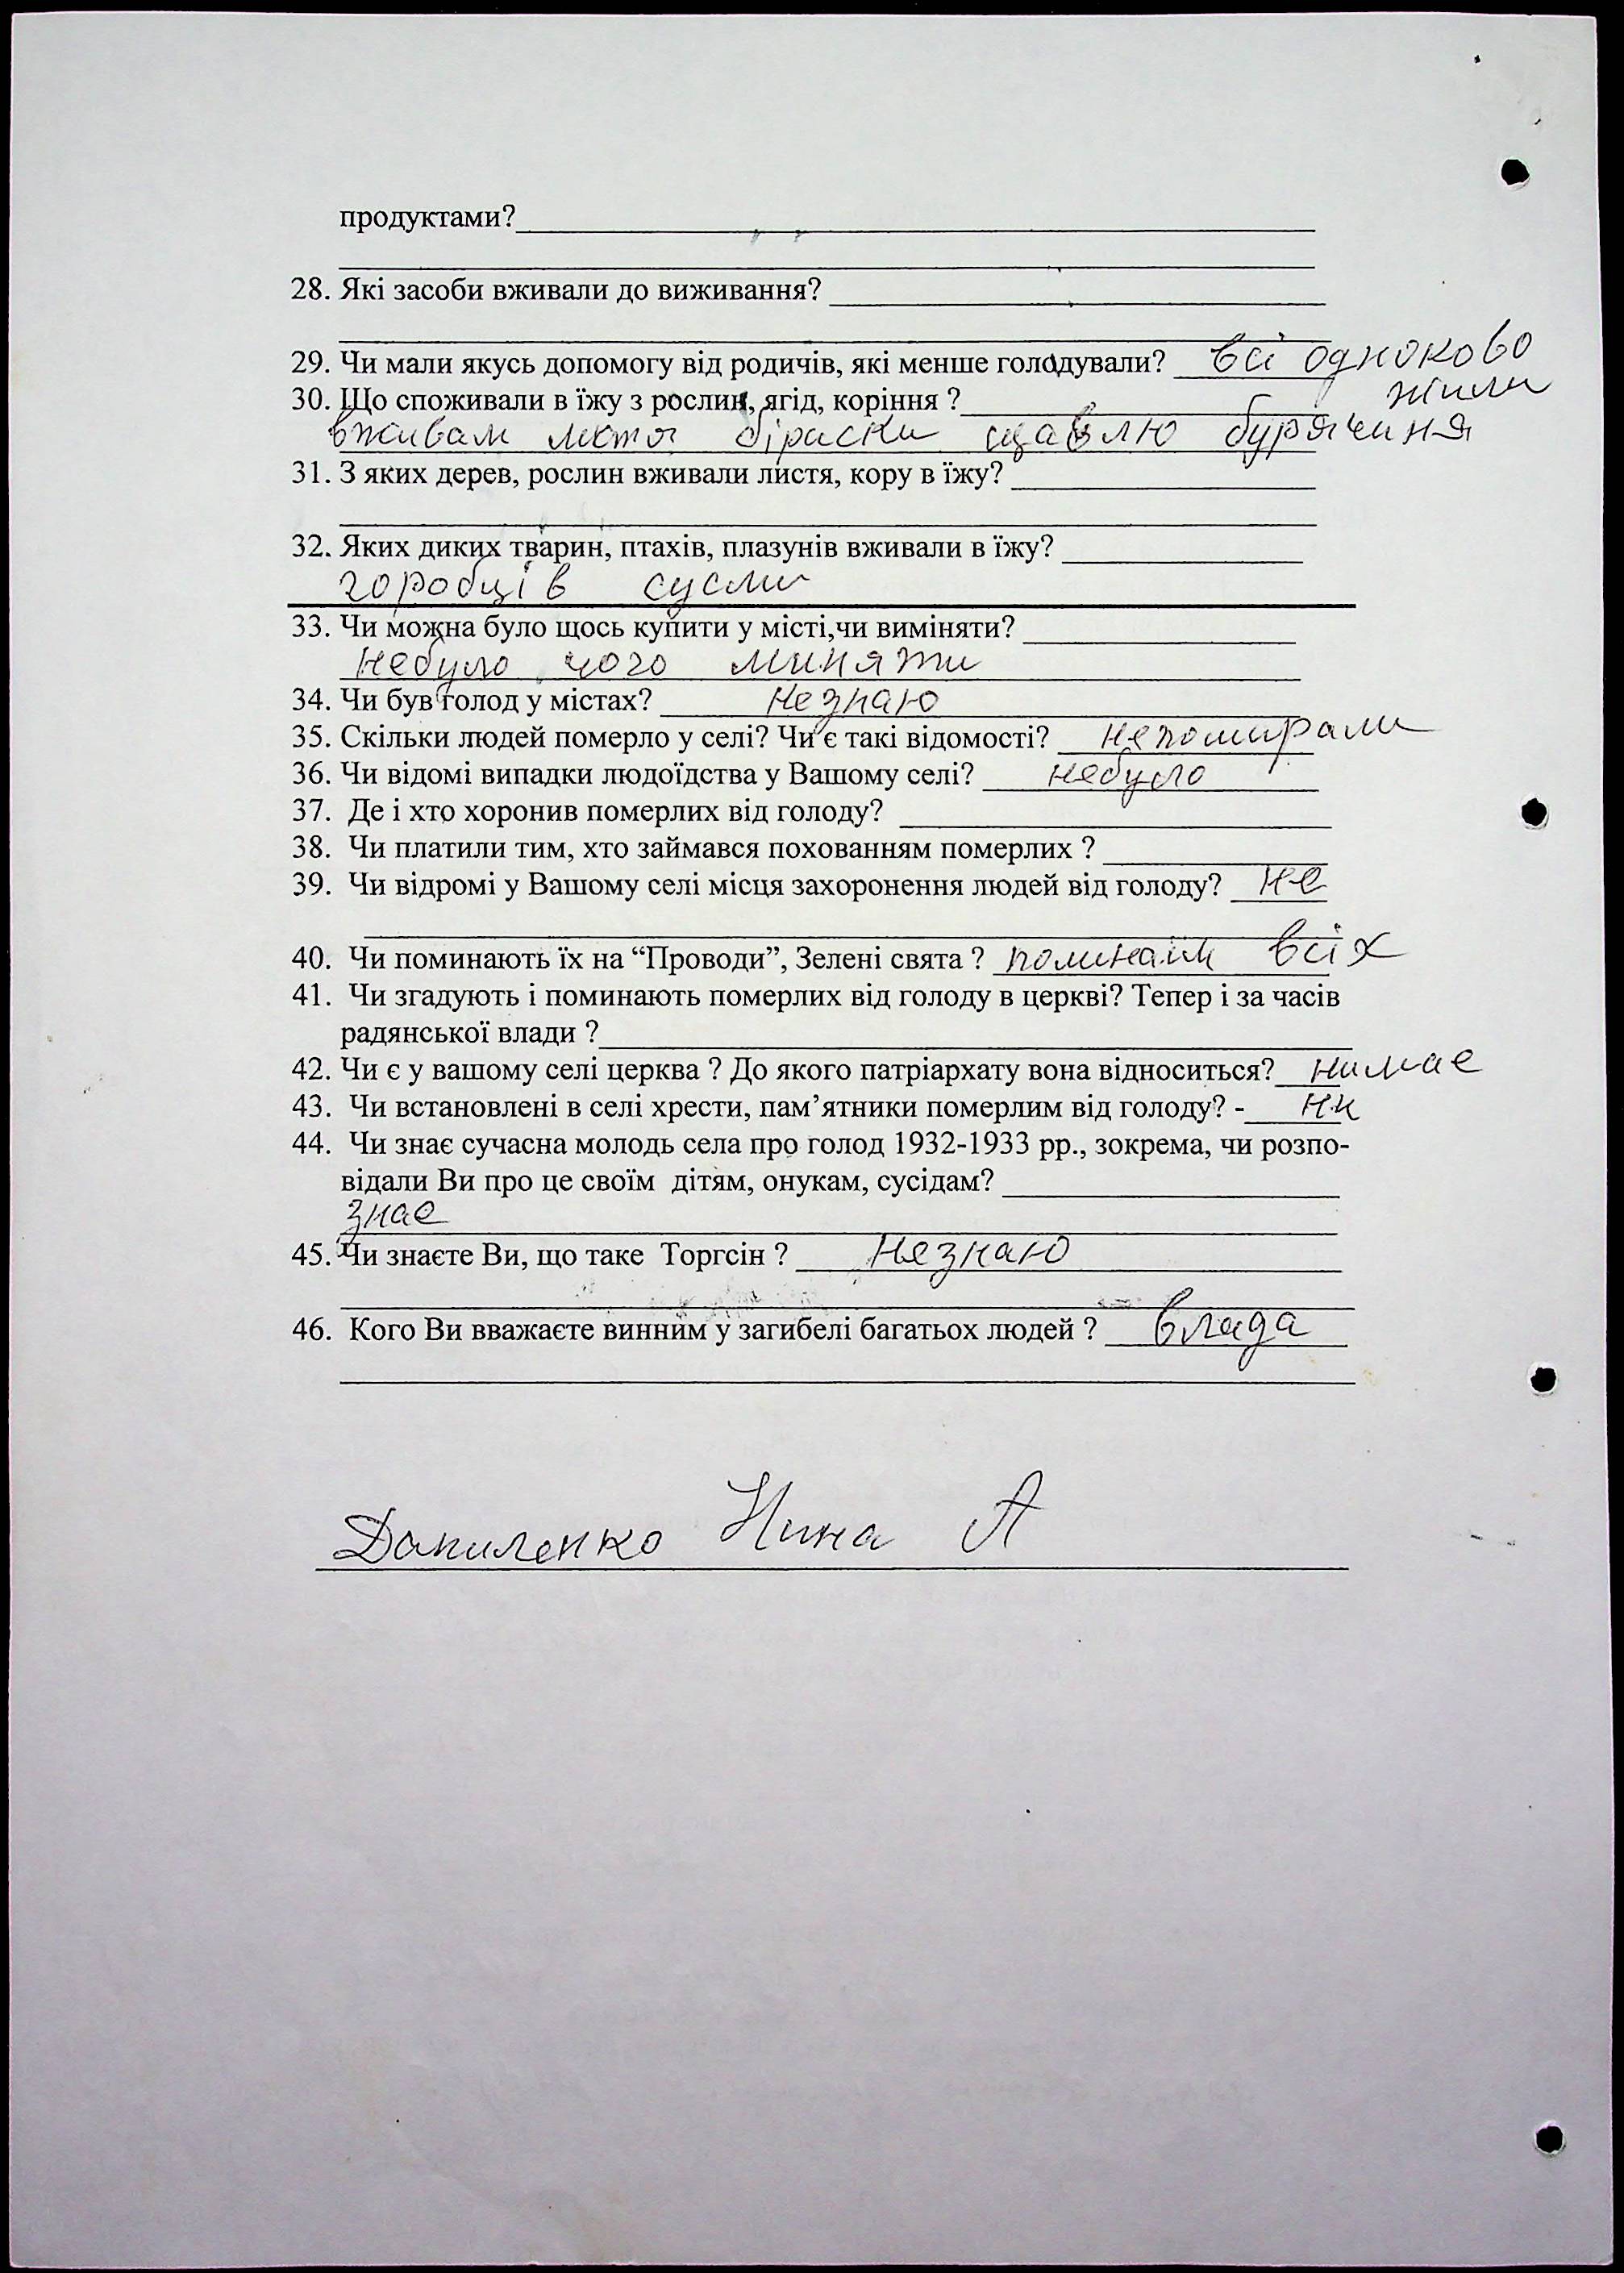 продуктами?
28. Які засоби вживали до виживання?
29. Чи мали якусь допомогу від родичів, які менше голодували? всі одноково
жили
30. Що споживали в їжу з рослин, ягід, коріння ?
вживали листя біраски щавлю бурячиння
31. З яких дерев, рослин вживали листя, кору в їжу?
32. Яких диких тварин, птахів, плазунів вживали в їжу?
горобців сусли
33. Чи можна було щось купити у місті,чи виміняти?
небуло чого миняти
34. Чи був голод у містах? незнаю
35. Скільки людей померло у селі? Чи є такі відомості? непомирали
36. Чи відомі випадки людоїдства у Вашому селі? небуло
37. Де і хто хоронив померлих від голоду?
38. Чи платили тим, хто займався похованням померлих ?
39. Чи відромі у Вашому селі місця захоронення людей від голоду? не
40. Чи поминають їх на “Проводи”, Зелені свята ? всіх
41. Чи згадують і поминають померлих від голоду в церкві? Тепер і за часів
радянської влади ?
42. Чи є у вашому селі церква ? До якого патріархату вона відноситься? нимае
43. Чи встановлені в селі хрести, пам’ятники померлим від голоду? - ни
44. Чи знає сучасна молодь села про голод 1932-1933 рр., зокрема, чи розпо-
відали Ви про це своїм дітям, онукам, сусідам?
знае
45. Чи знаєте Ви, що таке Торгсін ? незнаю
46. Кого Ви вважаєте винним у загибелі багатьох людей ? влада
Даниленко Нина А